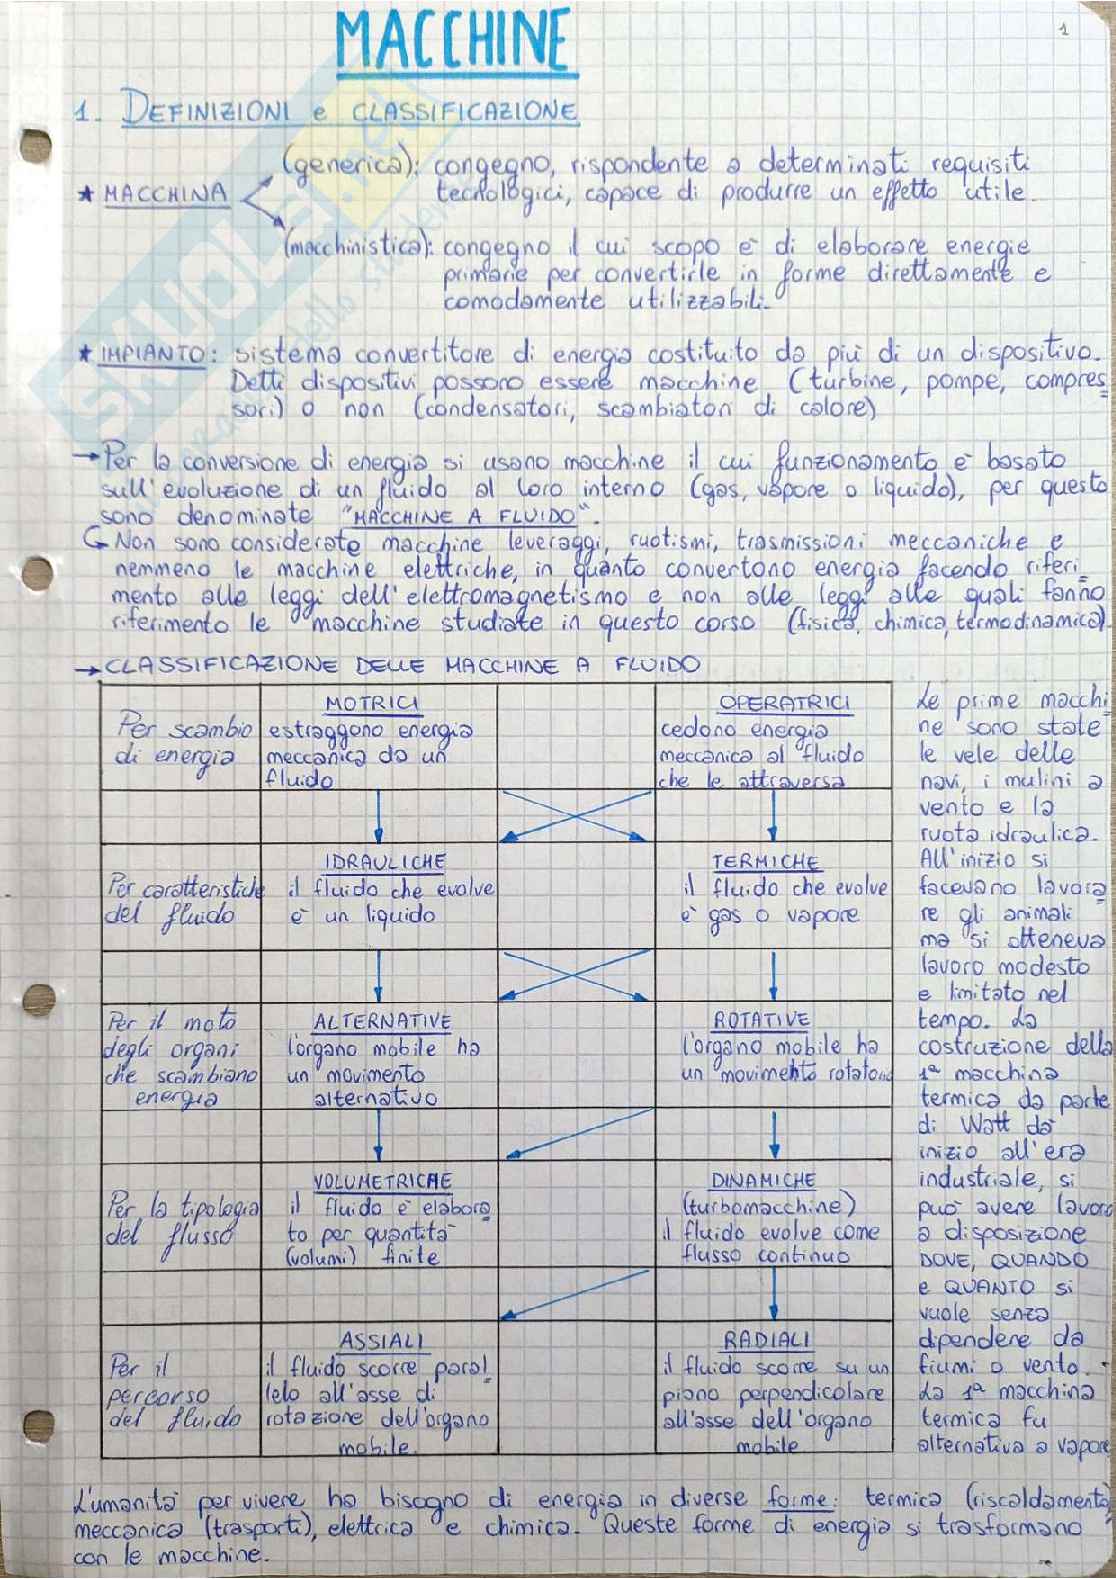 1
MACCHINE
1. DEFINIZIONI e CLASSIFICAZIONE
(generica): congegno, rispondente a determinati requisiti
★ MACCHINA
tecnologici, capace di produrre un effetto utile.
(macchinistica): congegno il cui scopo è di elaborare energie
primarie per convertirle in forme direttamente e
comodamente utilizzabili.
★ IMPIANTO: sistema convertitore di energia costituito da più di un dispositivo.
Detti dispositivi possono essere macchine (turbine, pompe, compres
sori) o non (condensatori, scambiatori di calore)
→ Per la conversione di energia si usano macchine il cui funzionamento è basato
sull'evoluzione di un fluido al loro interno (gas, vapore o liquido), per questo
sono denominate "MACCHINE A FLUIDO".
Non sono considerate macchine leveraggi, ruotismi, trasmissioni meccaniche e
nemmeno le macchine elettriche, in quanto convertono energia facendo riferi
mento alle leggi dell'elettromagnetismo e non alle leggi alle quali fanno
riferimento le macchine studiate in questo corso (fisica, chimica, termodinamica).
→ CLASSIFICAZIONE DELLE MACCHINE A FLUIDO
Per scambio
di energia
MOTRICI
estraggono energia
meccanica da un
fluido
OPERATRICI
cedono energia
meccanica al fluido
che le attraversa
Per caratteristiche
del fluido
IDRAULICHE
il fluido che evolve
è un liquido
TERMICHE
il fluido che evolve
è gas o vapore
Per il moto
degli organi
che scambiano
energia
ALTERNATIVE
l'organo mobile ha
un movimento
alternativo
ROTATIVE
l'organo mobile ha
un movimento rotatorio
Per la tipologia
del flusso
VOLUMETRICHE
il fluido è elabora
to per quantità
(volumi) finite
DINAMICHE
(turbomacchine)
il fluido evolve come
flusso continuo
Per il
percorso
del fluido
ASSIALI
il fluido scorre paral
lelo all'asse di
rotazione dell'organo
mobile.
RADIALI
il fluido scorre su un
piano perpendicolare
all'asse dell'organo
mobile
Le prime macchi
ne sono state
le vele delle
navi, i mulini a
vento e la
ruota idraulica.
All'inizio si
facevano lavora
re gli animali
ma si otteneva
lavoro modesto
e limitato nel
tempo. La
costruzione della
1ª macchina
termica da parte
di Watt dà
inizio all'era
industriale, si
può avere lavoro
a disposizione
DOVE, QUANDO
e QUANTO si
vuole senza
dipendere da
fiumi o vento.
La 1ª macchina
termica fu
alternativa a vapore
L'umanità per vivere ha bisogno di energia in diverse forme: termica (riscaldamento)
meccanica (trasporti), elettrica e chimica. Queste forme di energia si trasformano
con le macchine.
SKUOLA.net